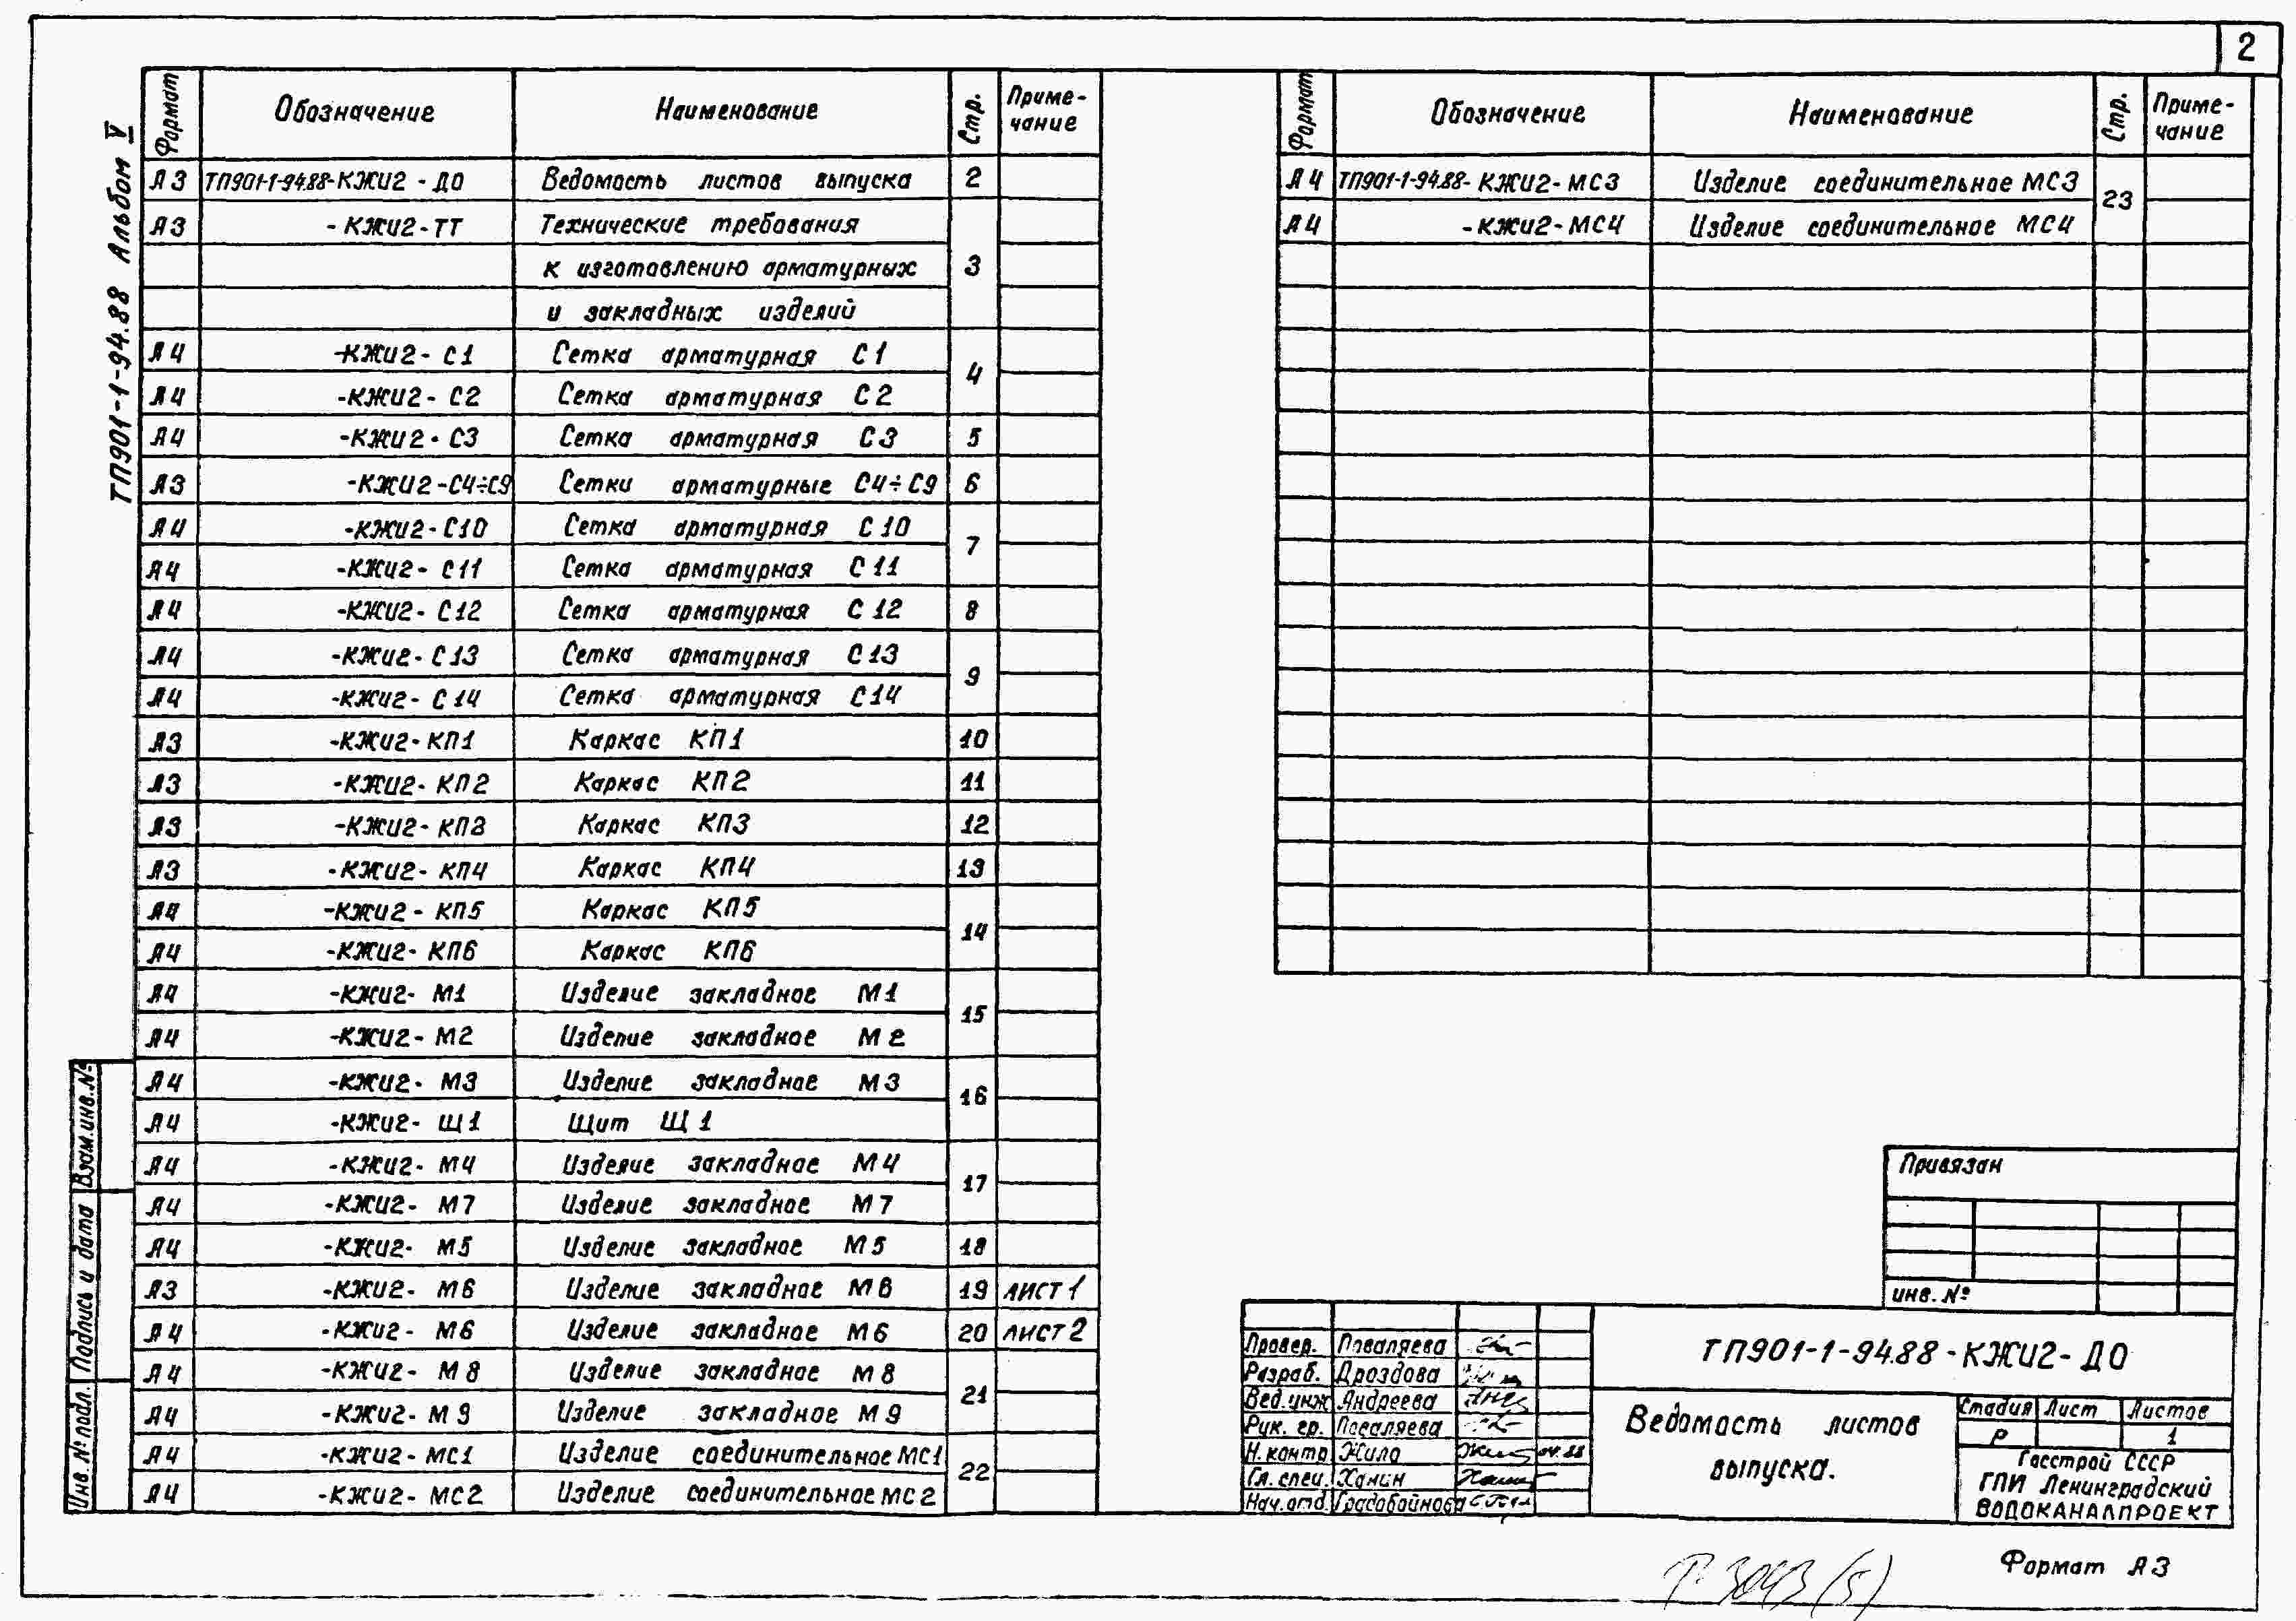 2
ТП901-1-94.88 Альбом V
Формат Обозначение Наименование Стр. Приме-
чание
А3 ТП901-1-94.88-КЖИ2-ДО Ведомость листов выпуска 2
А3 -КЖИ2-ТТ Технические требования
к изготовлению арматурных 3
и закладных изделий
А4 -КЖИ2-С1 Сетка арматурная С1
4
А4 -КЖИ2-С2 Сетка арматурная С2
А4 -КЖИ2-С3 Сетка арматурная С3 5
А3 -КЖИ2-С4÷С9 Сетки арматурные С4÷С9 6
А4 -КЖИ2-С10 Сетка арматурная С10
7
А4 -КЖИ2-С11 Сетка арматурная С11
А4 -КЖИ2-С12 Сетка арматурная С12 8
А4 -КЖИ2-С13 Сетка арматурная С13
9
А4 -КЖИ2-С14 Сетка арматурная С14
А3 -КЖИ2-КП1 Каркас КП1 10
А3 -КЖИ2-КП2 Каркас КП2 11
А3 -КЖИ2-КП3 Каркас КП3 12
А3 -КЖИ2-КП4 Каркас КП4 13
А4 -КЖИ2-КП5 Каркас КП5
14
А4 -КЖИ2-КП6 Каркас КП6
А4 -КЖИ2-М1 Изделие закладное М1
15
А4 -КЖИ2-М2 Изделие закладное М2
А4 -КЖИ2-М3 Изделие закладное М3
16
А4 -КЖИ2-Щ1 Щит Щ1
А4 -КЖИ2-М4 Изделие закладное М4
17
А4 -КЖИ2-М7 Изделие закладное М7
А4 -КЖИ2-М5 Изделие закладное М5 18
А3 -КЖИ2-М6 Изделие закладное М6 19 ЛИСТ 1
А4 -КЖИ2-М6 Изделие закладное М6 20 ЛИСТ 2
А4 -КЖИ2-М8 Изделие закладное М8
21
А4 -КЖИ2-М9 Изделие закладное М9
А4 -КЖИ2-МС1 Изделие соединительное МС1
22
А4 -КЖИ2-МС2 Изделие соединительное МС2
Взам.инв.№
Подпись и дата
Инв.№подл.
Формат Обозначение Наименование Стр. Приме-
чание
А4 ТП901-1-94.88-КЖИ2-МС3 Изделие соединительное МС3
23
А4 -КЖИ2-МС4 Изделие соединительное МС4
Привязан
инв.№
Провер. Поваляева
Разраб. Дроздова
Вед.инж Андреева
Рук. гр. Поваляева
Н.контр Жило 04.88
Гл. спец. Ханин
Нач.отд. Градобойнова
ТП901-1-94.88-КЖИ2-ДО
Ведомость листов
выпуска.
Стадия Лист Листов
Р 1
Госстрой СССР
ГПИ Ленинградский
ВОДОКАНАЛПРОЕКТ
Формат А3